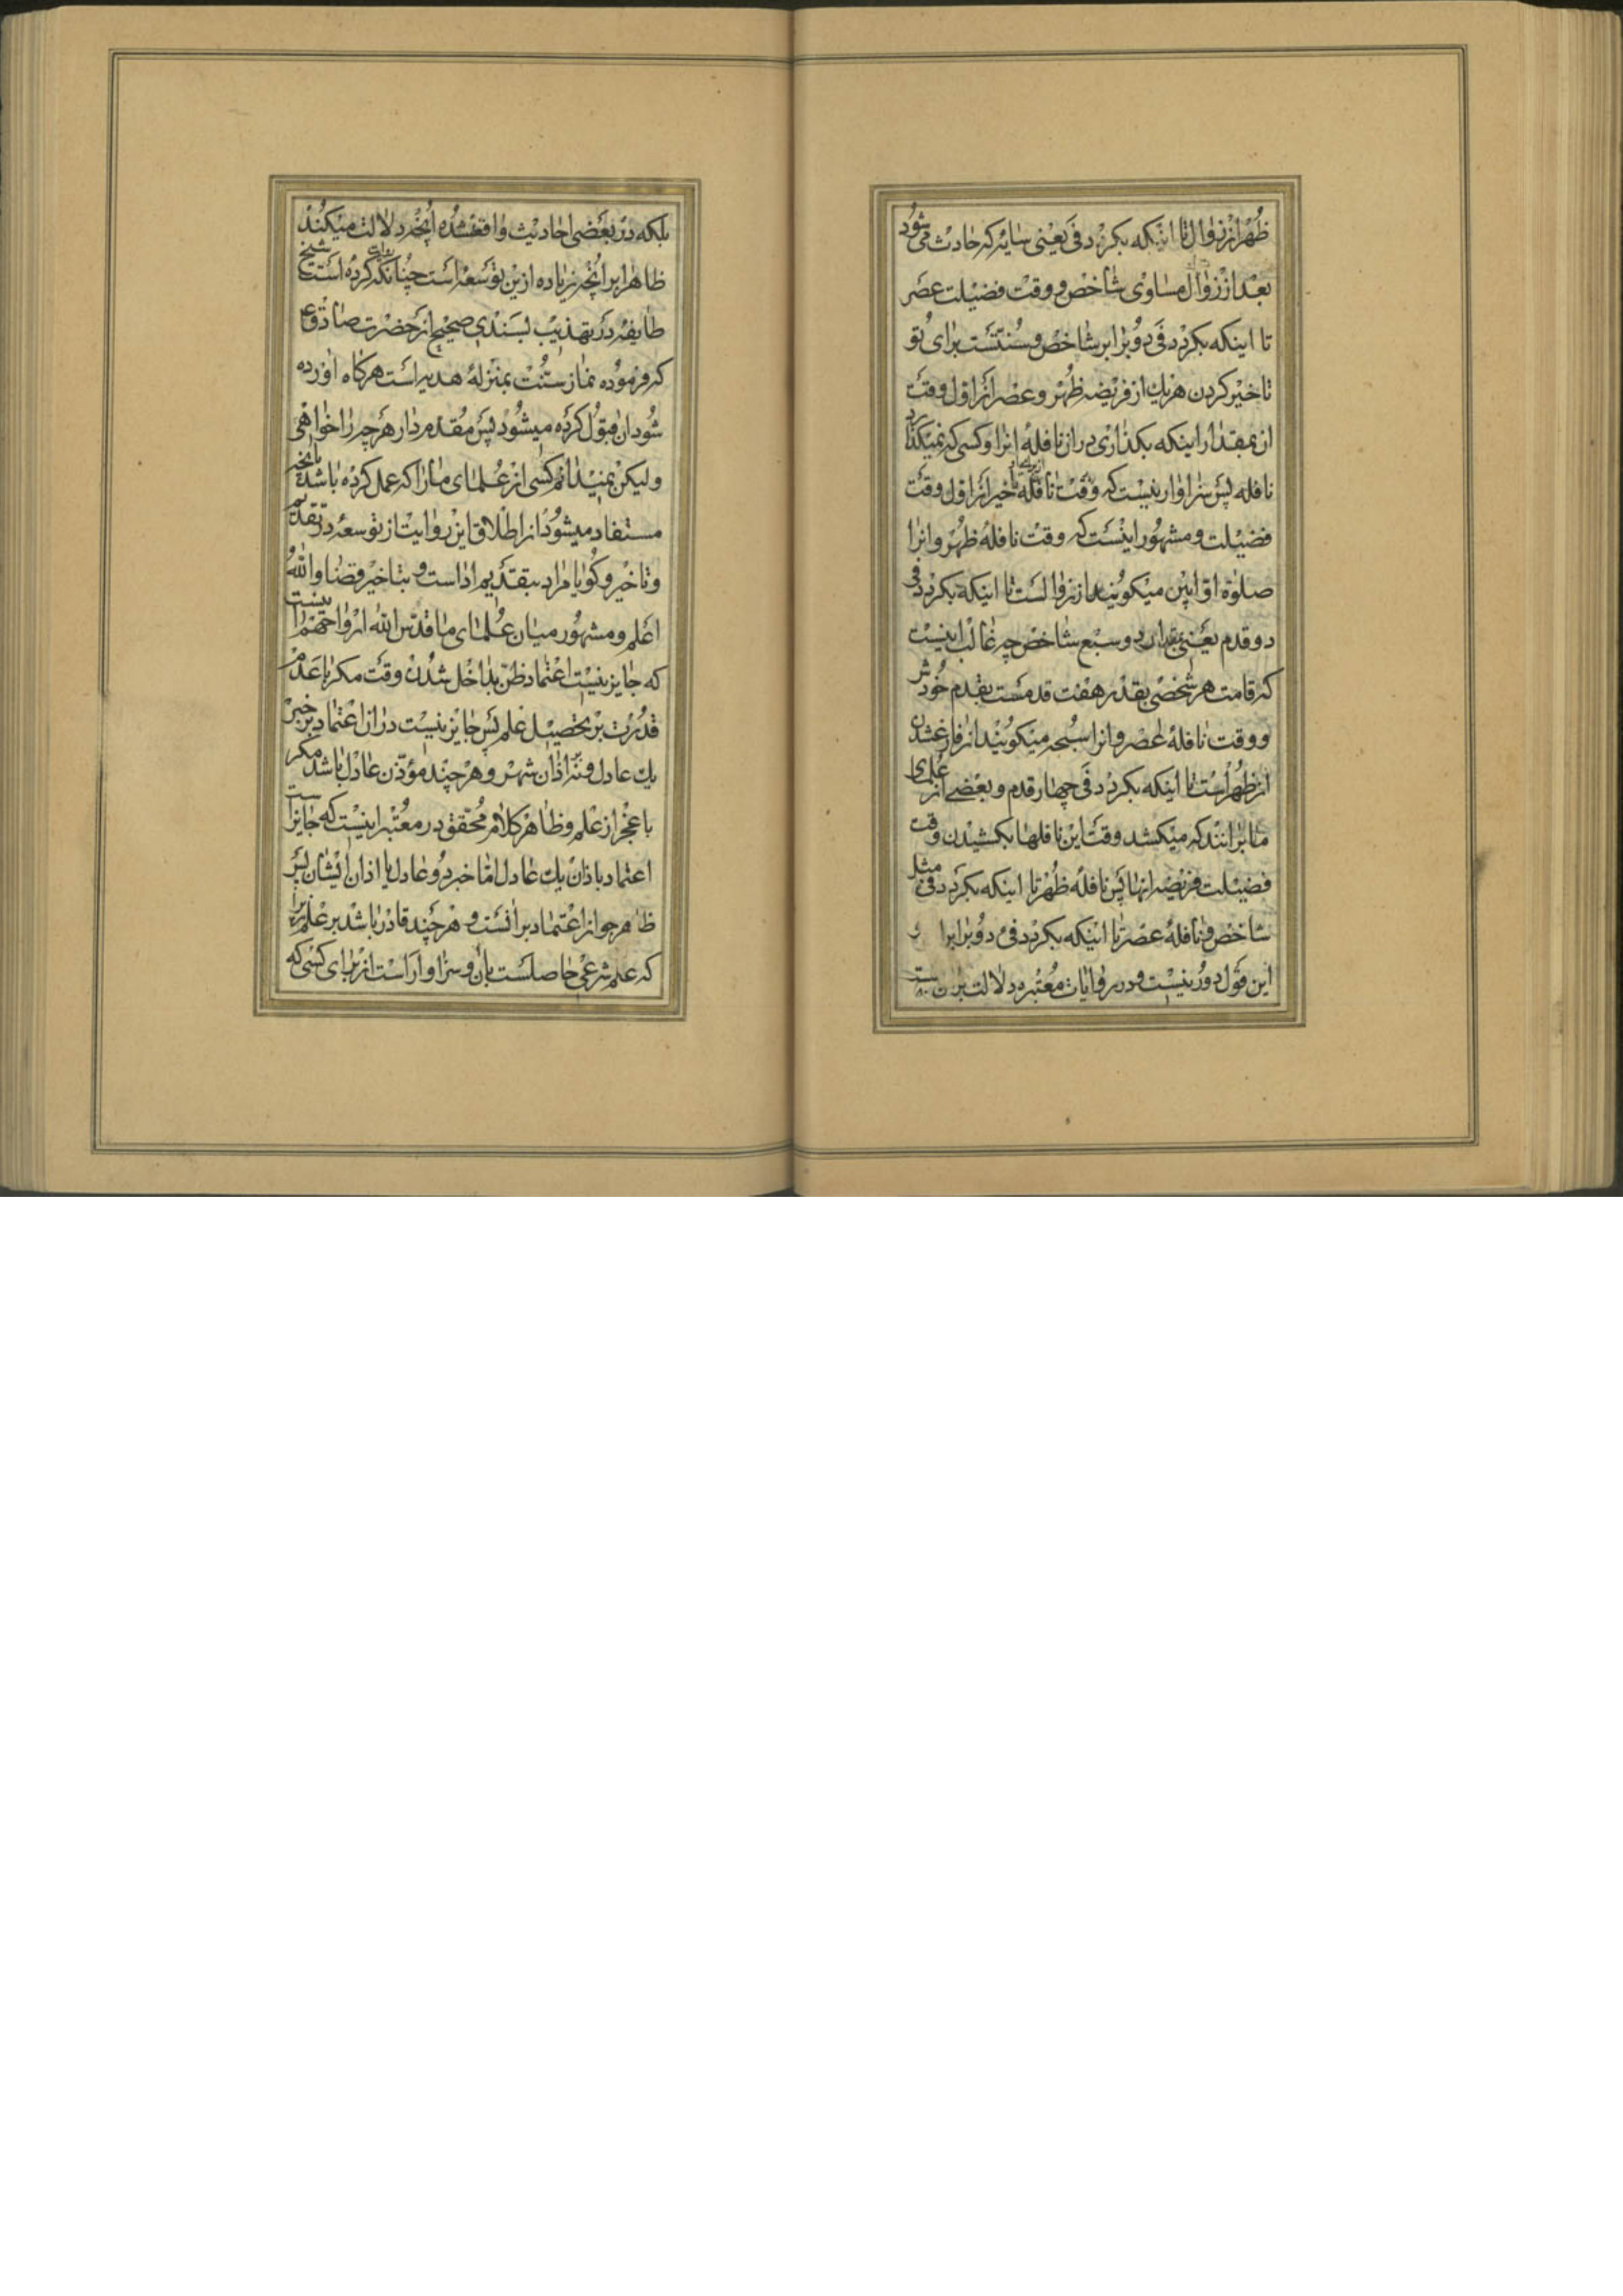 ظهر از زوال تا اینکه بکردد فی یعنی سایه که حادث می شود
بعد از زوال مساوی شاخص و وقت فضیلت عصر
تا اینکه بکردد فی دو برابر شاخص و سنتست برای تو
تاخیر کردن هر یك از فریضه ظهر و عصر از اول وقت
ان بمقدار اینکه بکذاری در ان نافلهٔ انرا و کسی که نمیکذارد
نافله پس سزاوار نیست که وقت نافله تاخیر از اول وقت
فضیلت و مشهور اینست که وقت نافلهٔ ظهر و انرا
صلوة اوابین میکویند از زوالست تا اینکه بکردد فی
دو قدم یعنی بقدر دو سبع شاخص چه غالب اینست
که قامت هر شخصی بقدر هفت قدمست بقدم خودش
و وقت نافلهٔ عصر و انرا سبحه میکویند از فارغ شدن
از ظهر است تا اینکه بکردد فی چهار قدم و بعضی از علمای
ما برانند که میکشد وقت این نافلها بکشیدن وقت
فضیلت فریضه انها پس نافلهٔ ظهر تا اینکه بکردد فی مثل
شاخص و نافلهٔ عصر تا اینکه بکردد فی دو برابر او
این قول دور نیست و در روایات معتبره دلالت بر ان هست
بلکه در بعضی احادیث واقع شده انچه دلالت میکند
ظاهرا بر انچه زیاده ازین توسعه است چنانکه روایت کرده است شیخ
طایفه در تهذیب بسندی صحیح از حضرت صادق ع
که فرموده نماز سنت بمنزلهٔ هدیه است هرکاه اورده
شود ان قبول کرده میشود پس مقدم دار هر چه را خواهی
ولیکن نمیدانم کسی از علمای ما را که عمل کرده باشد بانچه
مستفاد میشود از اطلاق این روایت از توسعه در تقدیم
و تاخیر و کویا مراد بتقدیم اداست و بتاخیر قضا والله
اعلم و مشهور میان علمای ما قدس الله ارواحهم اینست
که جایز نیست اعتماد ظن بداخل شدن وقت مکر با عدم
قدرت بر تحصیل علم پس جایز نیست در ان اعتماد بر خبر
یك عادل و نه اذان شهر و هر چند مؤذن عادل باشد مکر
با عجز از علم و ظاهر کلام محقق در معتبر اینست که جایز است
اعتماد باذان یك عادل اما خبر دو عادل یا اذان ایشان پس
ظاهر جواز اعتماد بر انست و هر چند قادر باشد بر علم زیرا
که علم شرعی حاصلست بان و سزاوار است از برای کسی که